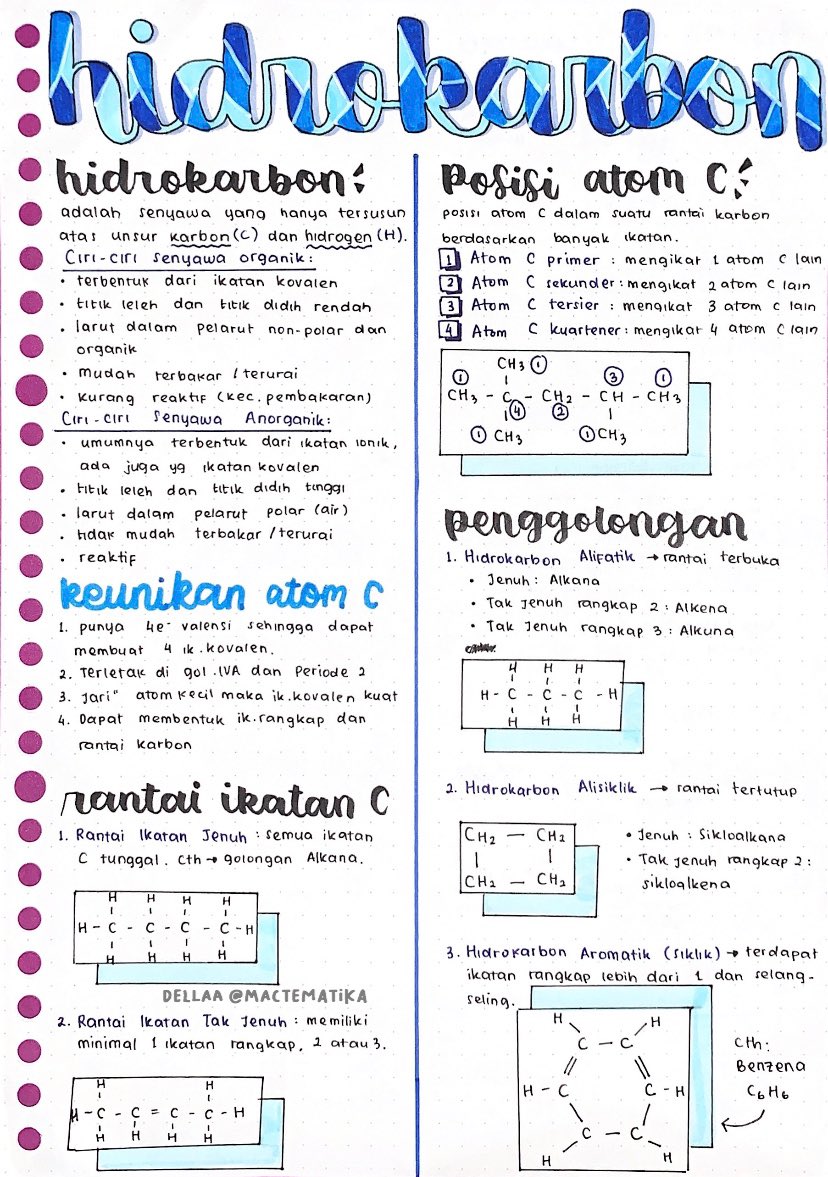 hidrokarbon
hidrokarbon
adalah senyawa yang hanya tersusun
atas unsur karbon (C) dan hidrogen (H).
Ciri-ciri senyawa organik:
• terbentuk dari ikatan kovalen
• titik leleh dan titik didih rendah
• larut dalam pelarut non-polar dan
organik
• mudah terbakar / terurai
• kurang reaktif (kec. pembakaran)
Ciri-ciri Senyawa Anorganik:
• umumnya terbentuk dari ikatan ionik,
ada juga yg ikatan kovalen
• titik leleh dan titik didih tinggi
• larut dalam pelarut polar (air)
• tidak mudah terbakar / terurai
• reaktif
keunikan atom C
1. punya 4e⁻ valensi sehingga dapat
membuat 4 ik. kovalen.
2. Terletak di gol. IVA dan Periode 2
3. Jari" atom kecil maka ik. kovalen kuat
4. Dapat membentuk ik. rangkap dan
rantai karbon
rantai ikatan C
1. Rantai Ikatan Jenuh : semua ikatan
C tunggal. Cth → golongan Alkana.
H H H H
H - C - C - C - C - H
H H H H
DELLAA @MACTEMATIKA
2. Rantai Ikatan Tak Jenuh : memiliki
minimal 1 ikatan rangkap, 2 atau 3.
H H
H - C - C = C - C - H
H H H H
Posisi atom C
posisi atom C dalam suatu rantai karbon
berdasarkan banyak ikatan.
1 Atom C primer : mengikat 1 atom C lain
2 Atom C sekunder : mengikat 2 atom C lain
3 Atom C tersier : mengikat 3 atom C lain
4 Atom C kuartener : mengikat 4 atom C lain
CH₃ ①
① ③ ①
CH₃ - C - CH₂ - CH - CH₃
④ ②
① CH₃ ① CH₃
penggolongan
1. Hidrokarbon Alifatik → rantai terbuka
• Jenuh : Alkana
• Tak Jenuh rangkap 2 : Alkena
• Tak Jenuh rangkap 3 : Alkuna
H H H
H - C - C - C - H
H H H
2. Hidrokarbon Alisiklik → rantai tertutup
CH₂ — CH₂
CH₂ — CH₂
• Jenuh : Sikloalkana
• Tak jenuh rangkap 2 :
sikloalkena
3. Hidrokarbon Aromatik (siklik) → terdapat
ikatan rangkap lebih dari 1 dan selang-
seling.
H H
C — C
H - C C - H
C — C
H H
Cth:
Benzena
C₆H₆